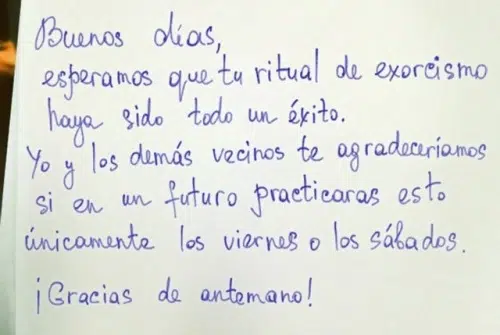 Buenos días,
esperamos que tu ritual de exorcismo
haya sido todo un éxito.
Yo y los demás vecinos te agradeceríamos
si en un futuro practicaras esto
únicamente los viernes o los sábados.
¡Gracias de antemano!